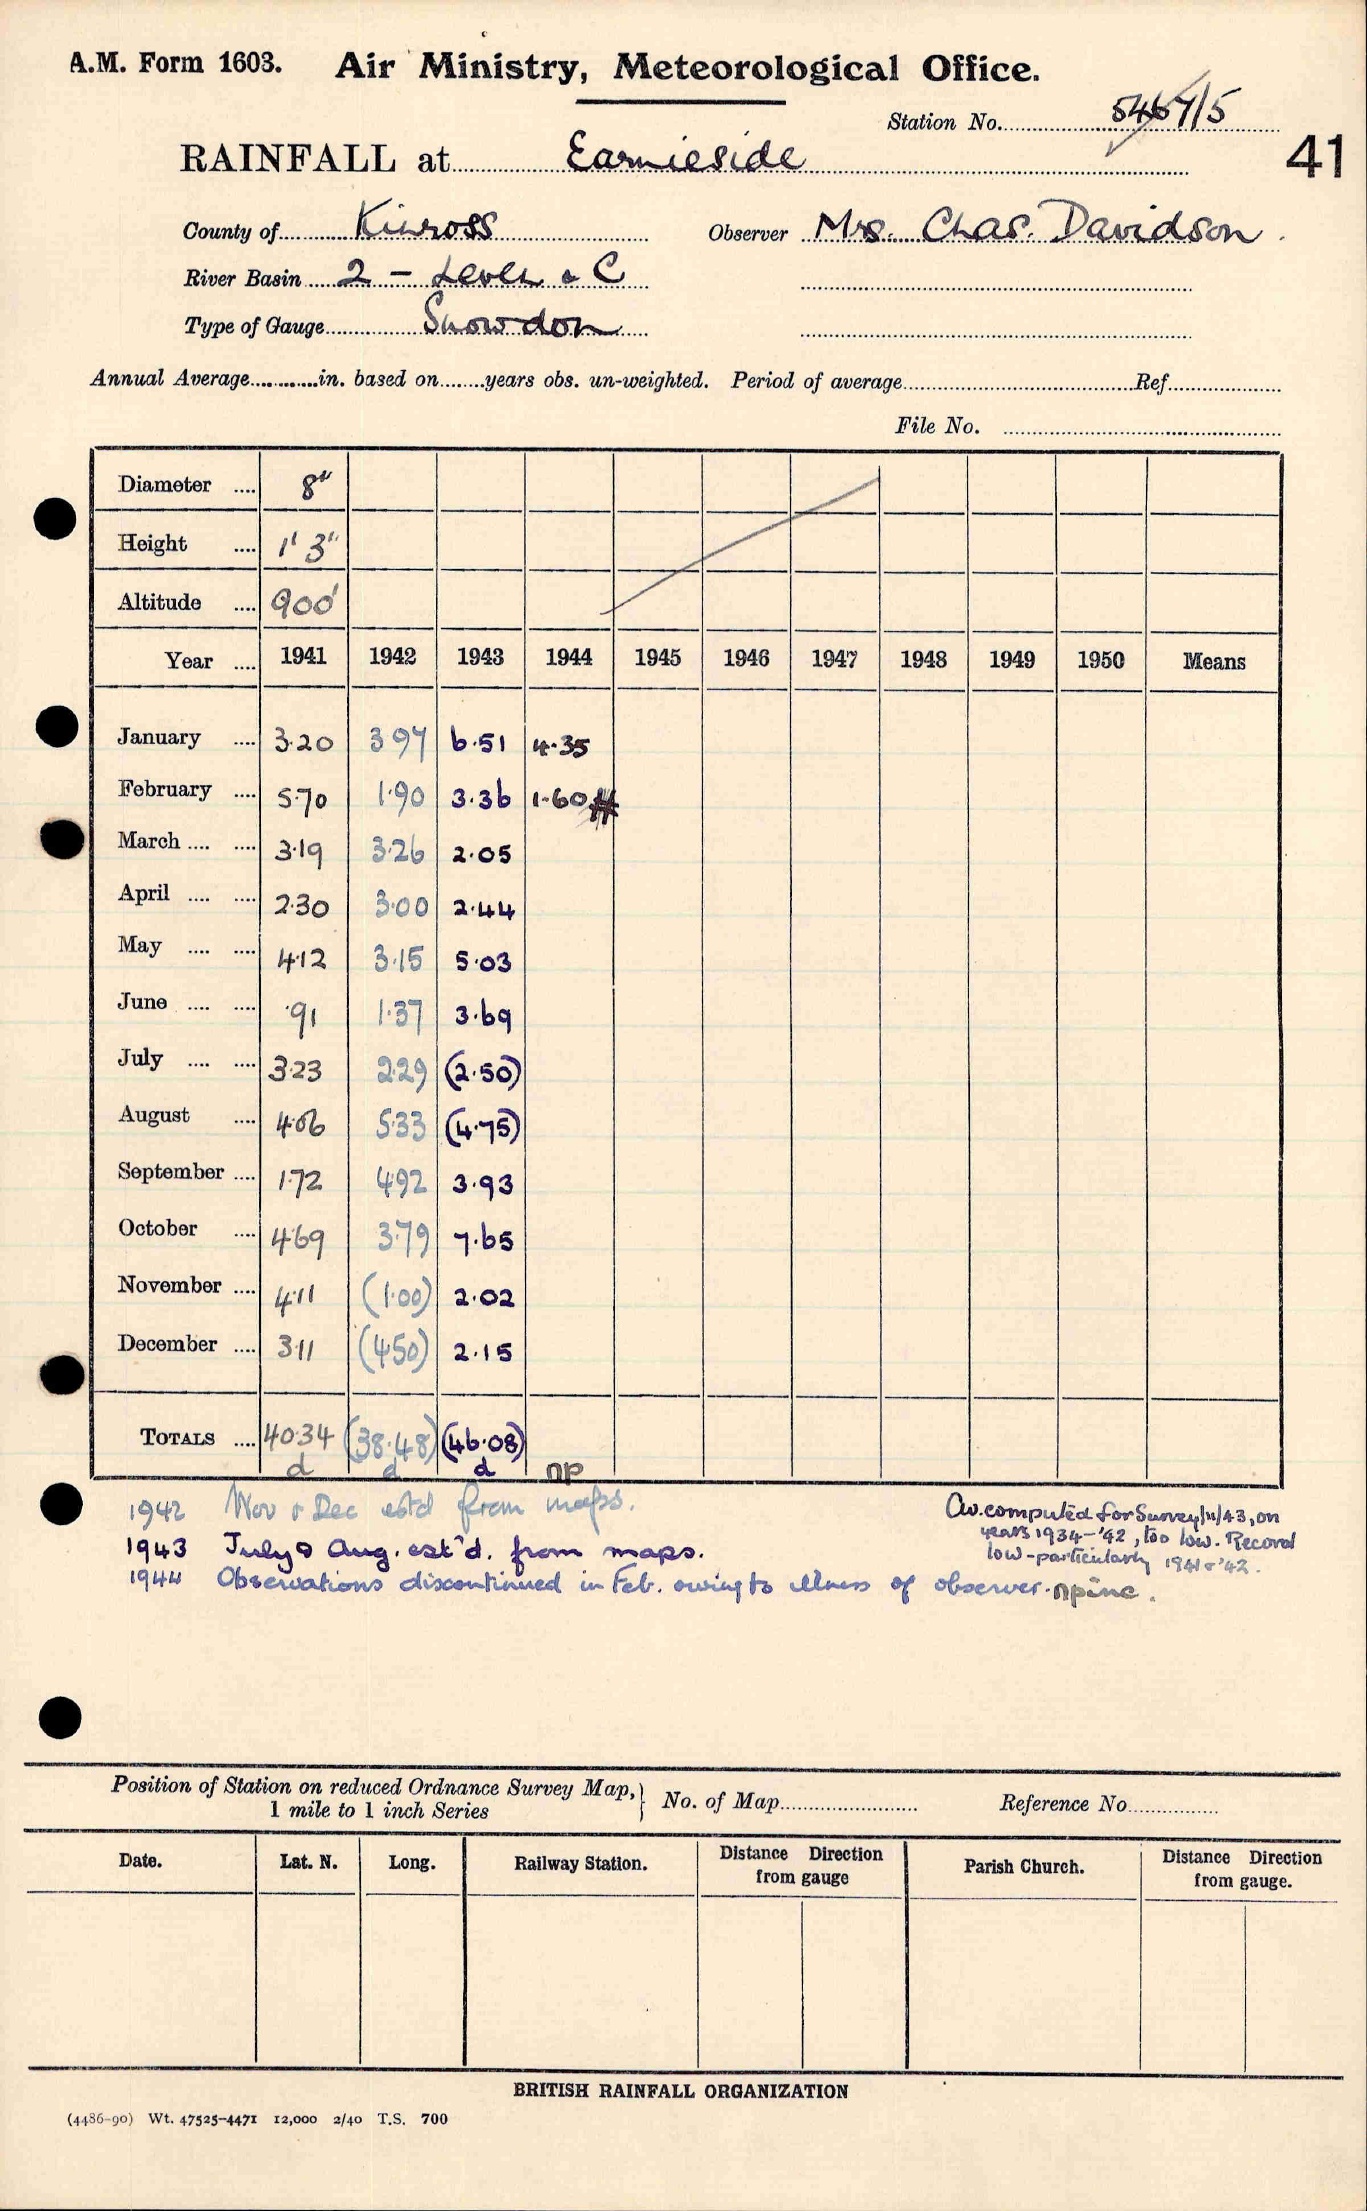 A.M. Form 1603. Air Ministry, Meteorological Office.
Station No. 5467/5
41
RAINFALL at Earnieside
County of Kinross Observer Mrs. Chas. Davidson.
River Basin 2 - Leven & C
Type of Gauge Snowdon
Annual Average............in. based on........years obs. un-weighted. Period of average Ref.
File No.
Diameter .... 8"
Height .... 1' 3"
Altitude .... 900'
Year .... 1941 1942 1943 1944 1945 1946 1947 1948 1949 1950 Means
January .... 3.20 3.97 6.51 4.35
February .... 5.70 1.90 3.36 1.60 #
March .... .... 3.19 3.26 2.05
April .... .... 2.30 3.00 2.44
May .... .... 4.12 3.15 5.03
June .... .... .91 1.37 3.69
July .... .... 3.23 2.29 (2.50)
August .... 4.06 5.33 (4.75)
September .... 1.72 4.92 3.93
October .... 4.69 3.79 7.65
November .... 4.11 (1.00) 2.02
December .... 3.11 (4.50) 2.15
TOTALS .... 40.34 (38.48) (46.08)
d d d np
1942 Nov & Dec est'd from maps.
1943 July & Aug. est'd. from maps.
1944 Observations discontinued in Feb. owing to illness of observer. npinc.
Av. computed for Survey /11/43, on
years 1934-'42, too low. Record
low - particularly 1941 & '42.
Position of Station on reduced Ordnance Survey Map, } No. of Map Reference No.
1 mile to 1 inch Series
Date. Lat. N. Long. Railway Station. Distance Direction Parish Church. Distance Direction
from gauge from gauge.
BRITISH RAINFALL ORGANIZATION
(4486-90) Wt. 47525-4471 12,000 2/40 T.S. 700